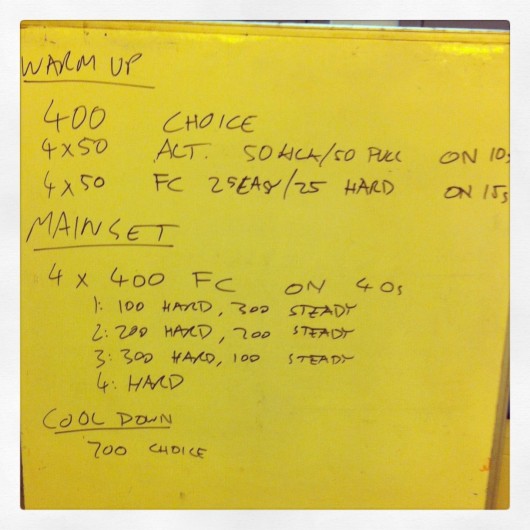 WARM UP
400 CHOICE
4 x 50 ALT. 50 KICK/50 PULL ON 10s
4 x 50 FC 25 EASY/25 HARD ON 15s
MAINSET
4 x 400 FC ON 40s
1: 100 HARD, 300 STEADY
2: 200 HARD, 200 STEADY
3: 300 HARD, 100 STEADY
4: HARD
COOL DOWN
700 CHOICE